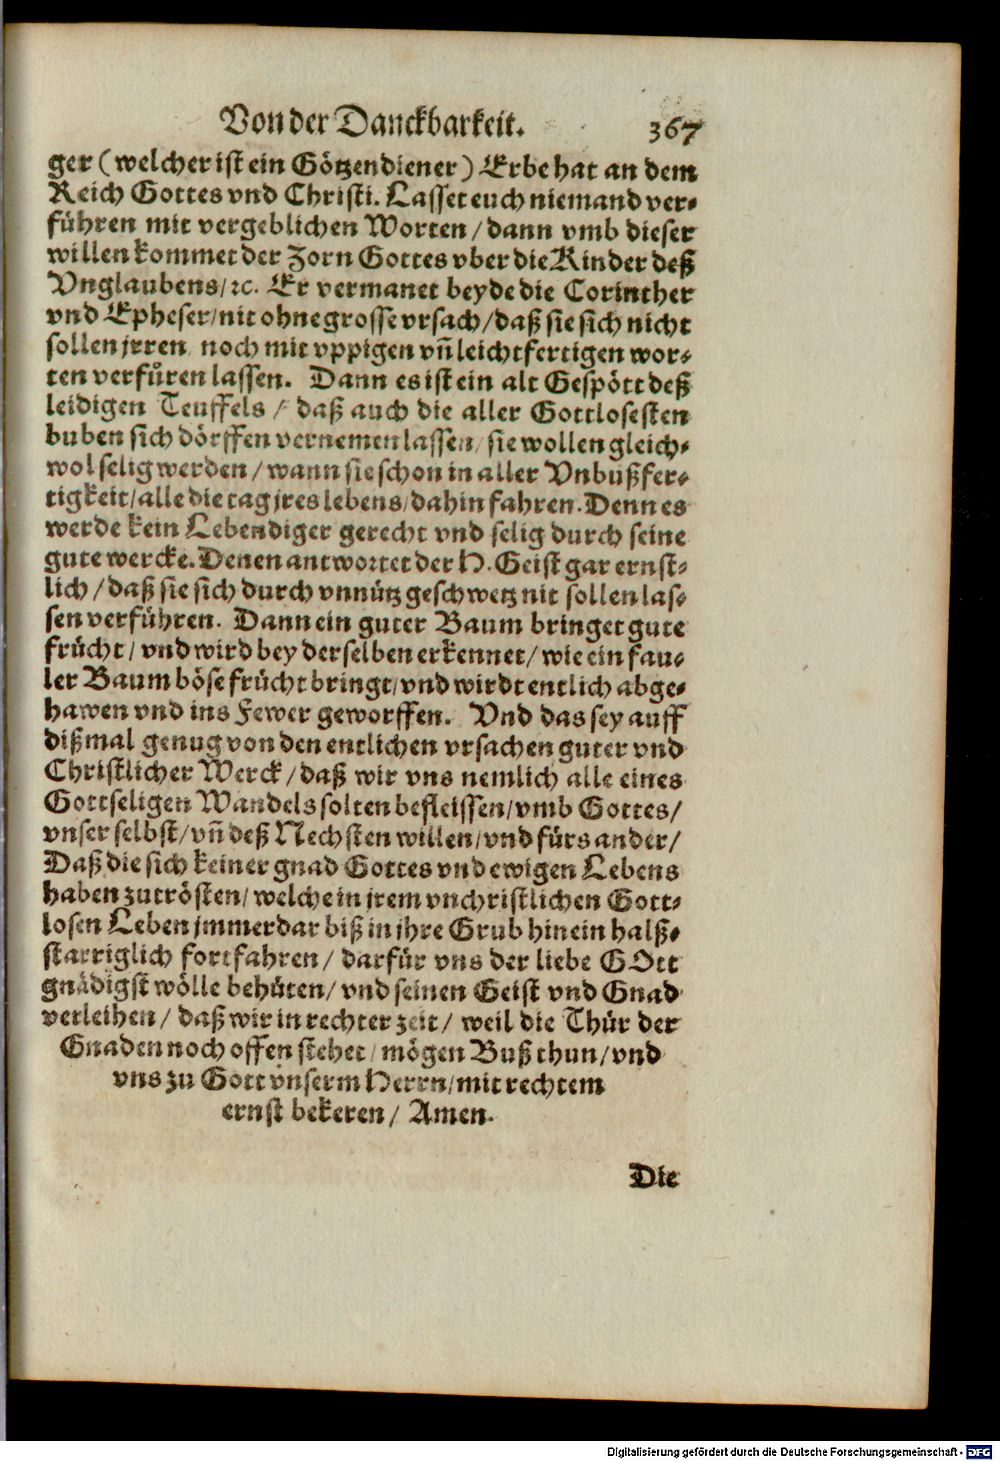 Von der Danckbarkeit. 367
ger (welcher ist ein Götzendiener) Erbe hat an dem
Reich Gottes vnd Christi. Lasset euch niemand ver-
führen mit vergeblichen Worten / dann vmb dieser
willen kommet der Zorn Gottes vber die Kinder deß
Vnglaubens / ꝛc. Er vermanet beyde die Corinther
vnd Epheser / nit ohne grosse vrsach / daß sie sich nicht
sollen jrren noch mit vppigen vñ leichtfertigen wor-
ten verfüren lassen. Dann es ist ein alt Gespött deß
leidigen Teuffels / daß auch die aller Gottlosesten
buben sich dörffen vernemen lassen / sie wollen gleich-
wol selig werden / wann sie schon in aller Vnbußfer-
tigkeit / alle die tag jres lebens / dahin fahren. Denn es
werde kein Lebendiger gerecht vnd selig durch seine
gute wercke. Denen antwortet der H. Geist gar ernst-
lich / daß sie sich durch vnnütz geschwetz nit sollen las-
sen verführen. Dann ein guter Baum bringet gute
frücht / vnd wird bey derselben erkennet / wie ein fau-
ler Baum böse frücht bringt / vnd wirdt entlich abge-
hawen vnd ins Fewer geworffen. Vnd das sey auff
dißmal genug von den entlichen vrsachen guter vnd
Christlicher Werck / daß wir vns nemlich alle eines
Gottseligen Wandels solten befleissen / vmb Gottes /
vnser selbst / vñ deß Nechsten willen / vnd fürs ander /
Daß die sich keiner gnad Gottes vnd ewigen Lebens
haben zutrösten / welche in jrem vnchristlichen Gott-
losen Leben jmmerdar biß in ihre Grub hinein halß-
starriglich fortfahren / darfür vns der liebe GOtt
gnädigst wölle behüten / vnd seinen Geist vnd Gnad
verleihen / daß wir in rechter zeit / weil die Thür der
Gnaden noch offen stehet / mögen Buß thun / vnd
vns zu Gott vnserm Herrn / mit rechtem
ernst bekeren / Amen.
Die
Digitalisierung gefördert durch die Deutsche Forschungsgemeinschaft - DFG